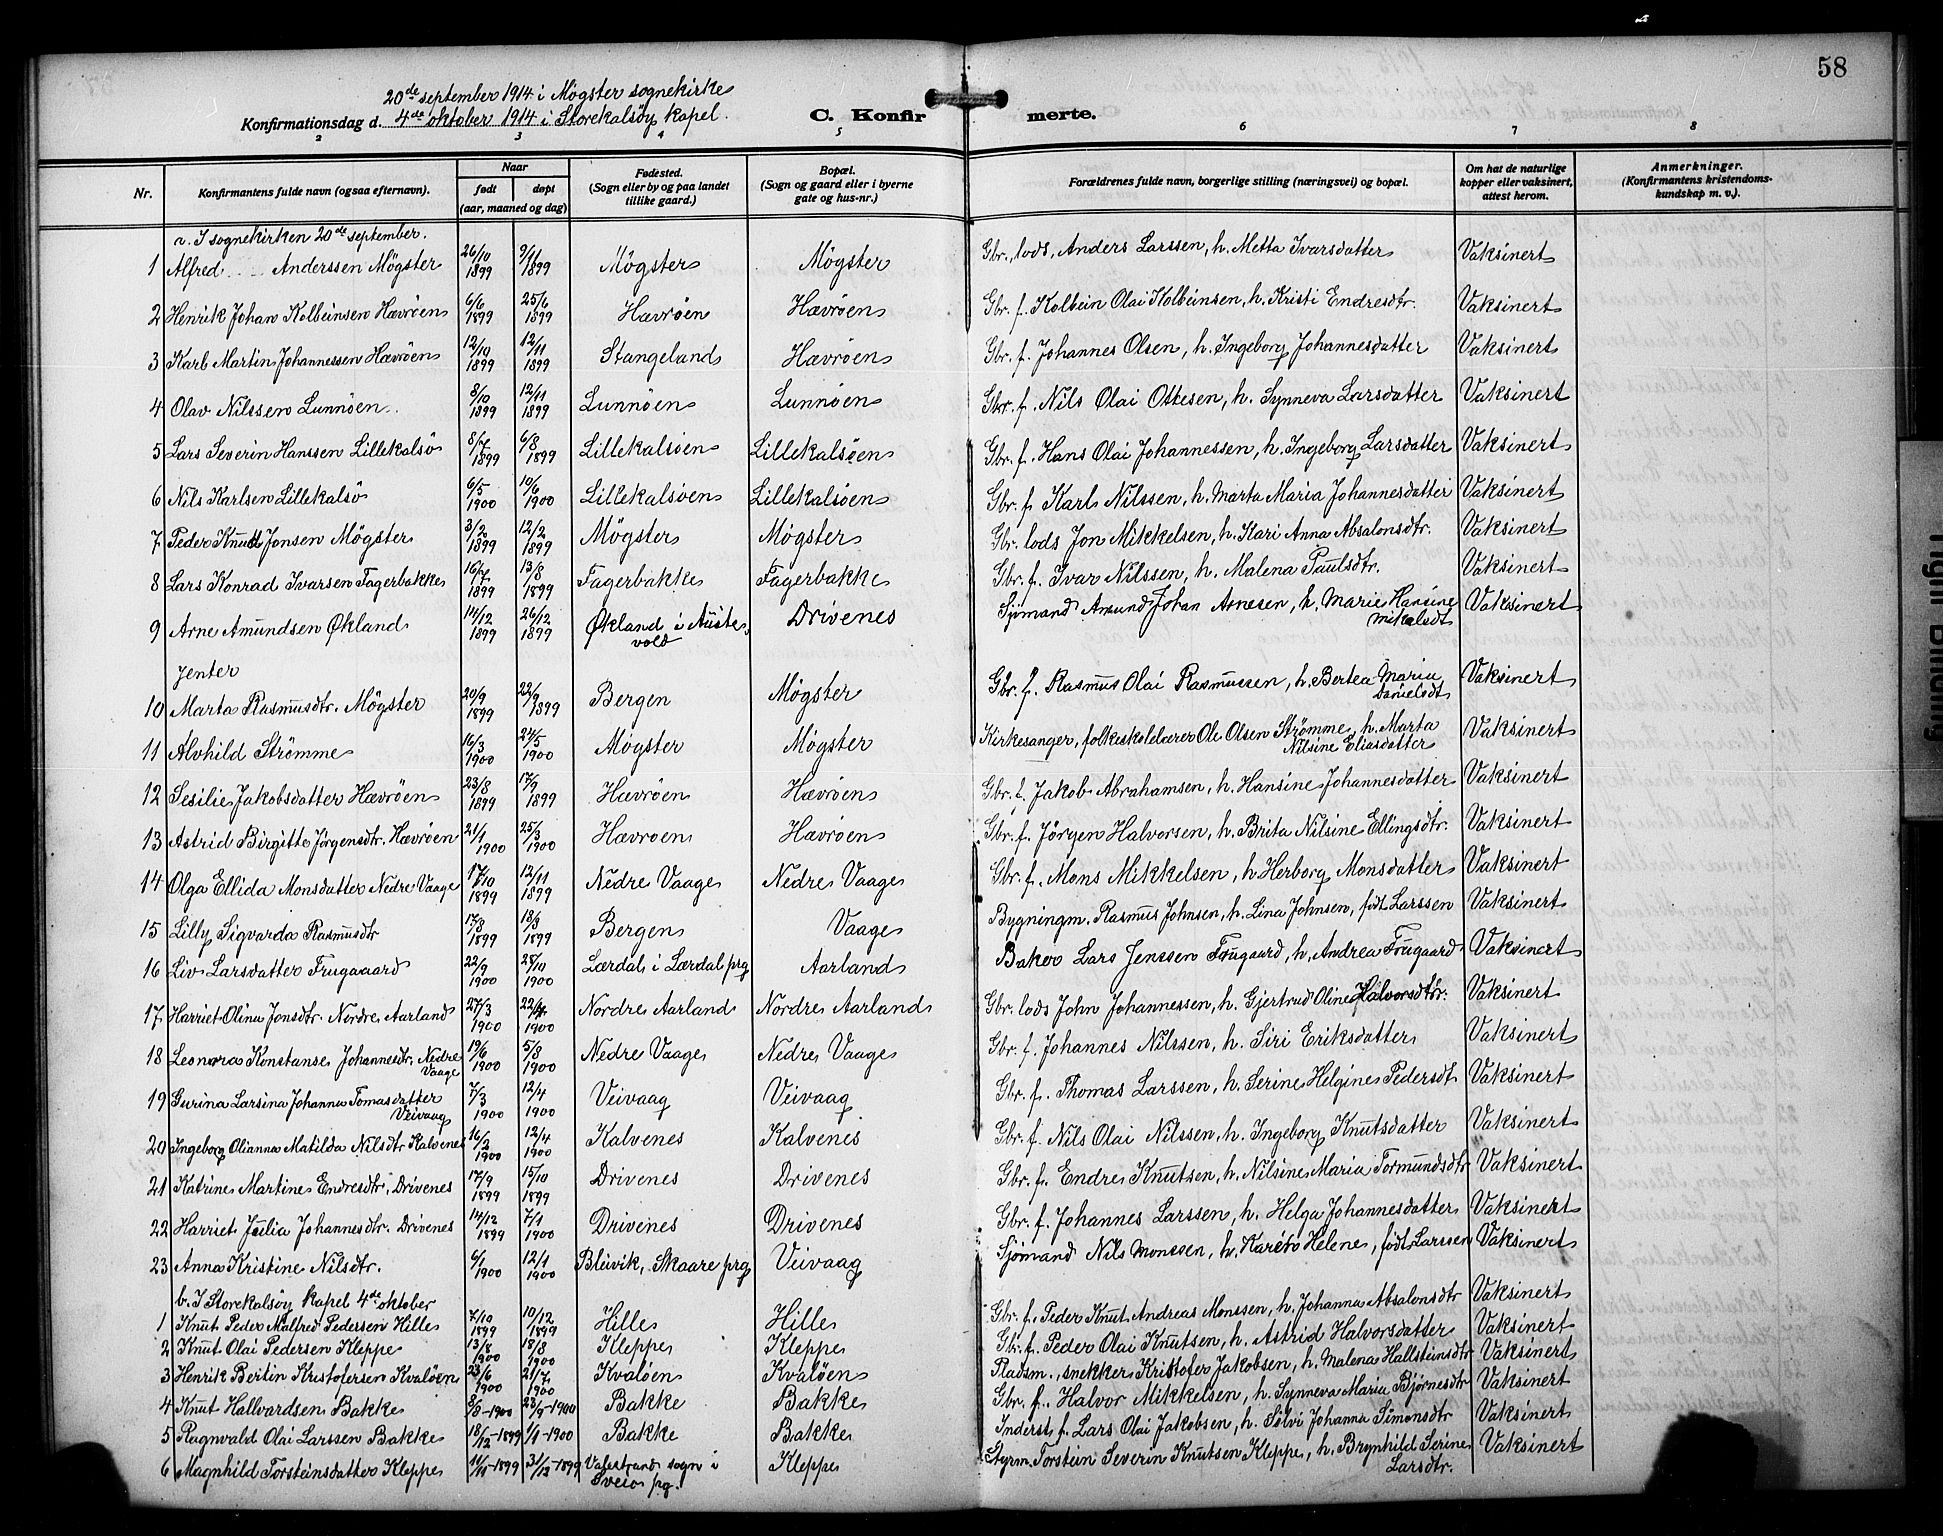 58
20de september 1914 i Møgster sognekirke
Konfirmationsdag d. 4de oktober 1914 i Storekalsøy kapel.
C. Konfirmerte.
2 3 4 5 6 7 8
Nr. Konfirmantens fulde navn (ogsaa efternavn). Naar født døpt (aar, maaned og dag) Fødested. (Sogn eller by og paa landet tillike gaard.) Bopæl. (Sogn og gaard eller i byerne gate og hus-nr.) Forældrenes fulde navn, borgerlige stilling (næringsvei) og bopæl. Om hat de naturlige kopper eller vaksinert, attest herom. Anmerkninger. (Konfirmantens kristendoms-kundskap m. v.).
a. I sognekirken 20de september.
1 Alfred Anderssen Møgster 26/10 1899 9/11 1899 Møgster Møgster Gbr., lods, Anders Larssen, h. Metta Ivarsdatter Vaksinert
2 Henrik Johan Kolbeinsen Hævrøen 6/6 1899 25/6 1899 Hævrøen Hævrøen Gbr. f. Kolbein Olai Kolbeinsen, h. Kristi Endresdtr. Vaksinert
3 Karl Martin Johannessen Hævrøen 12/10 1899 12/11 1899 Stangeland Hævrøen Gbr. f. Johannes Olsen, h. Ingeborg Johannesdatter Vaksinert
4 Olav Nilssen Lunnøen 8/10 1899 12/11 1899 Lunnøen Lunnøen Gbr. f. Nils Olai Ottesen, h. Synneva Larsdatter Vaksinert
5 Lars Severin Hanssen Lillekalsø 8/7 1899 6/8 1899 Lillekalsøen Lillekalsøen Gbr. f. Hans Olai Johannessen, h. Ingeborg Larsdatter Vaksinert
6 Nils Karlsen Lillekalsø 6/5 1900 10/6 1900 Lillekalsøen Lillekalsøen Gbr. f. Karl Nilssen, h. Marta Maria Johannesdatter Vaksinert
7 Peder Knut Jonsen Møgster 3/2 1899 12/2 1899 Møgster Møgster Gbr. lods Jon Mikkelsen, h. Kari Anna Absalonsdtr. Vaksinert
8 Lars Konrad Ivarsen Fagerbakke 16/7 1899 13/8 1899 Fagerbakke Fagerbakke Gbr. f. Ivar Nilssen, h. Malena Paulsdtr. Vaksinert
9 Arne Amundsen Økland 14/12 1899 26/12 1899 Økland i Austevold Drivenes Sjømand Amund Johan Arnesen, h. Marie Hansine Mikalsdt Vaksinert
Jenter
10 Marta Rasmusdtr. Møgster 20/9 1899 22/9 1899 Bergen Møgster Gbr. f. Rasmus Olai Rasmussen, h. Bertea Maria Danielsdt Vaksinert
11 Alvhild Strømme 16/3 1900 24/5 1900 Møgster Møgster Kirkesanger, folkeskolelærer Ole Olsen Strømme, h. Marta Nilsine Eliasdatter Vaksinert
12 Sesilie Jakobsdatter Hævrøen 23/8 1899 17/9 1899 Hævrøen Hævrøen Gbr. f. Jakob Abrahamsen, h. Hansine Johannesdatter Vaksinert
13 Astrid Birgitte Jørgensdtr. Hævrøen 21/1 1900 25/3 1900 Hævrøen Hævrøen Gbr. f. Jørgen Halvorsen, h. Brita Nilsine Ellingsdtr. Vaksinert
14 Olga Ellida Monsdatter Nedre Vaage 17/10 1899 12/11 1899 Nedre Vaage Nedre Vaage Gbr. f. Mons Mikkelsen, h. Herborg Monsdatter Vaksinert
15 Lilly Sigvarda Rasmusdtr 17/3 1899 18/3 1899 Bergen Vaage Bygningm. Rasmus Johnsen, h. Lina Johnsen, født Larssen Vaksinert
16 Liv Larsdatter Frugaard 22/9 1900 28/10 1900 Lærdal i Lærdal prg Aarland Baker Lars Jenssen Frugaard, h. Andrea Frugaard Vaksinert
17 Harriet Olina Jonsdtr. Nordre Aarland 27/3 1900 22/4 1900 Nordre Aarland Nordre Aarland Gbr. lods John Johannessen, h. Gjertrud Oline Halvorsdtr. Vaksinert
18 Leonora Konstanse Johannesdtr. Nedre Vaage 19/6 1900 5/8 1900 Nedre Vaage Nedre Vaage Gbr. f. Johannes Nilssen, h. Siri Eriksdatter Vaksinert
19 Gurina Larsina Johanna Tomasdatter Veivaag 7/3 1900 12/4 1900 Veivaag Veivaag Gbr. f. Thomas Larssen, h. Serine Helgine Pedersdt Vaksinert
20 Ingeborg Olianna Matilda Nilsdtr Kalvenes 16/2 1900 12/4 1900 Kalvenes Kalvenes Gbr. f. Nils Olai Nilssen, h. Ingeborg Knutsdatter Vaksinert
21 Katrine Martine Endresdtr. Drivenes 17/9 1899 15/10 1899 Drivenes Drivenes Gbr. f. Endre Knutsen, h. Nilsine Maria Tormundsdtr Vaksinert
22 Harriet Julia Johannesdtr. Drivenes 14/12 1899 7/1 1900 Drivenes Drivenes Gbr. f. Johannes Larssen, h. Helga Johannesdatter Vaksinert
23 Anna Kristine Nilsdtr. 6/1 1900 12/1 1900 Bleivik, Skaare prg Veivaag Sjømand Nils Monssen, h. Karen Helene, født Larssen Vaksinert
b. I Storekalsøy kapel 4de oktober
1 Knut Peder Malfred Pedersen Hille 7/10 1899 10/12 1899 Hille Hille Gbr. f. Peder Knut Andreas Monssen, h. Johanna Absalonsdtr Vaksinert
2 Knut Olai Pedersen Kleppe 13/8 1900 18/8 1900 Kleppe Kleppe Gbr. f. Peder Olai Knutsen, h. Astrid Halvorsdatter Vaksinert
3 Henrik Bertin Kristofersen Kvaløen 23/6 1900 21/7 1900 Kvaløen Kvaløen Pladsm., snekker Kristofer Jakobsen, h. Malena Hallsteinsdtr Vaksinert
4 Knut Hallvardsen Bakke 3/8-1900 23/9-1900 Bakke Bakke Gbr. f. Halvor Mikkelsen, h. Synneva Maria Bjørnesdtr Vaksinert
5 Ragnvald Olai Larssen Bakke 18/12-1899 1/1-1900 Bakke Bakke Inderst f. Lars Olai Jakobsen, h. Silvi Johanna Simonsdtr Vaksinert
6 Magnhild Torsteinsdatter Kleppe 11/11-1899 31/12-1899 Valestrand sogn i Sveio prg. Kleppe Styrm. Torstein Severin Knutsen Kleppe, h. Brynhild Serine Larsdtr. Vaksinert
Tight Binding